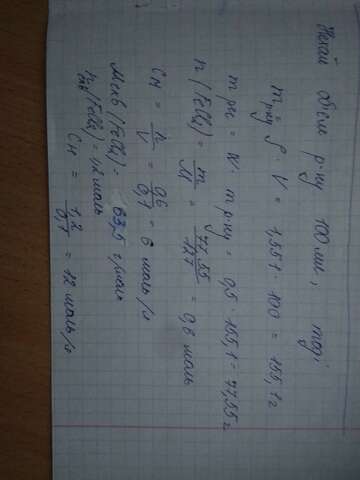 Нехай обʼєм р-ну 100 мл, тоді
m р-ну = ρ · V = 1,551 · 100 = 155,1 г
m реч = W · m р-ну = 0,5 · 155,1 = 77,55 г
n (FeCl₂) = m/M = 77,55/127 = 0,6 моль
CH = n/V = 0,6/0,1 = 6 моль/л
Mекв (FeCl₂) = 63,5 г/моль
n екв (FeCl₂) = 1,2 моль
CH = 1,2/0,1 = 12 моль/л